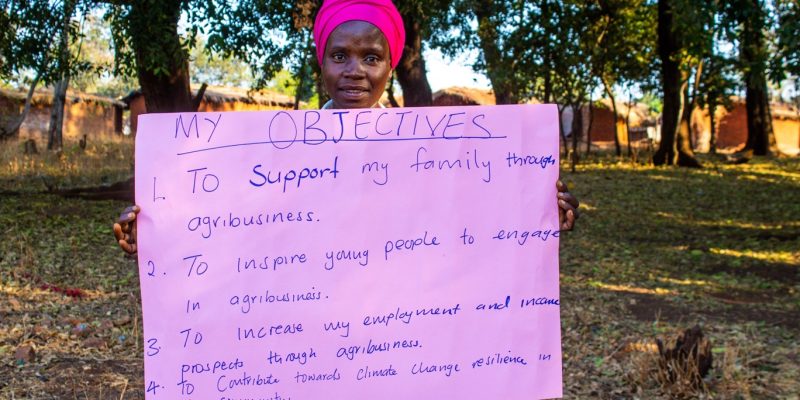 MY OBJECTIVES
1. TO Support my family through
agribusiness.
2. TO Inspire young people to engage
in agribusiness.
3. TO Increase my employment and income
prospects through agribusiness.
4. TO Contribute towards climate change resilience in